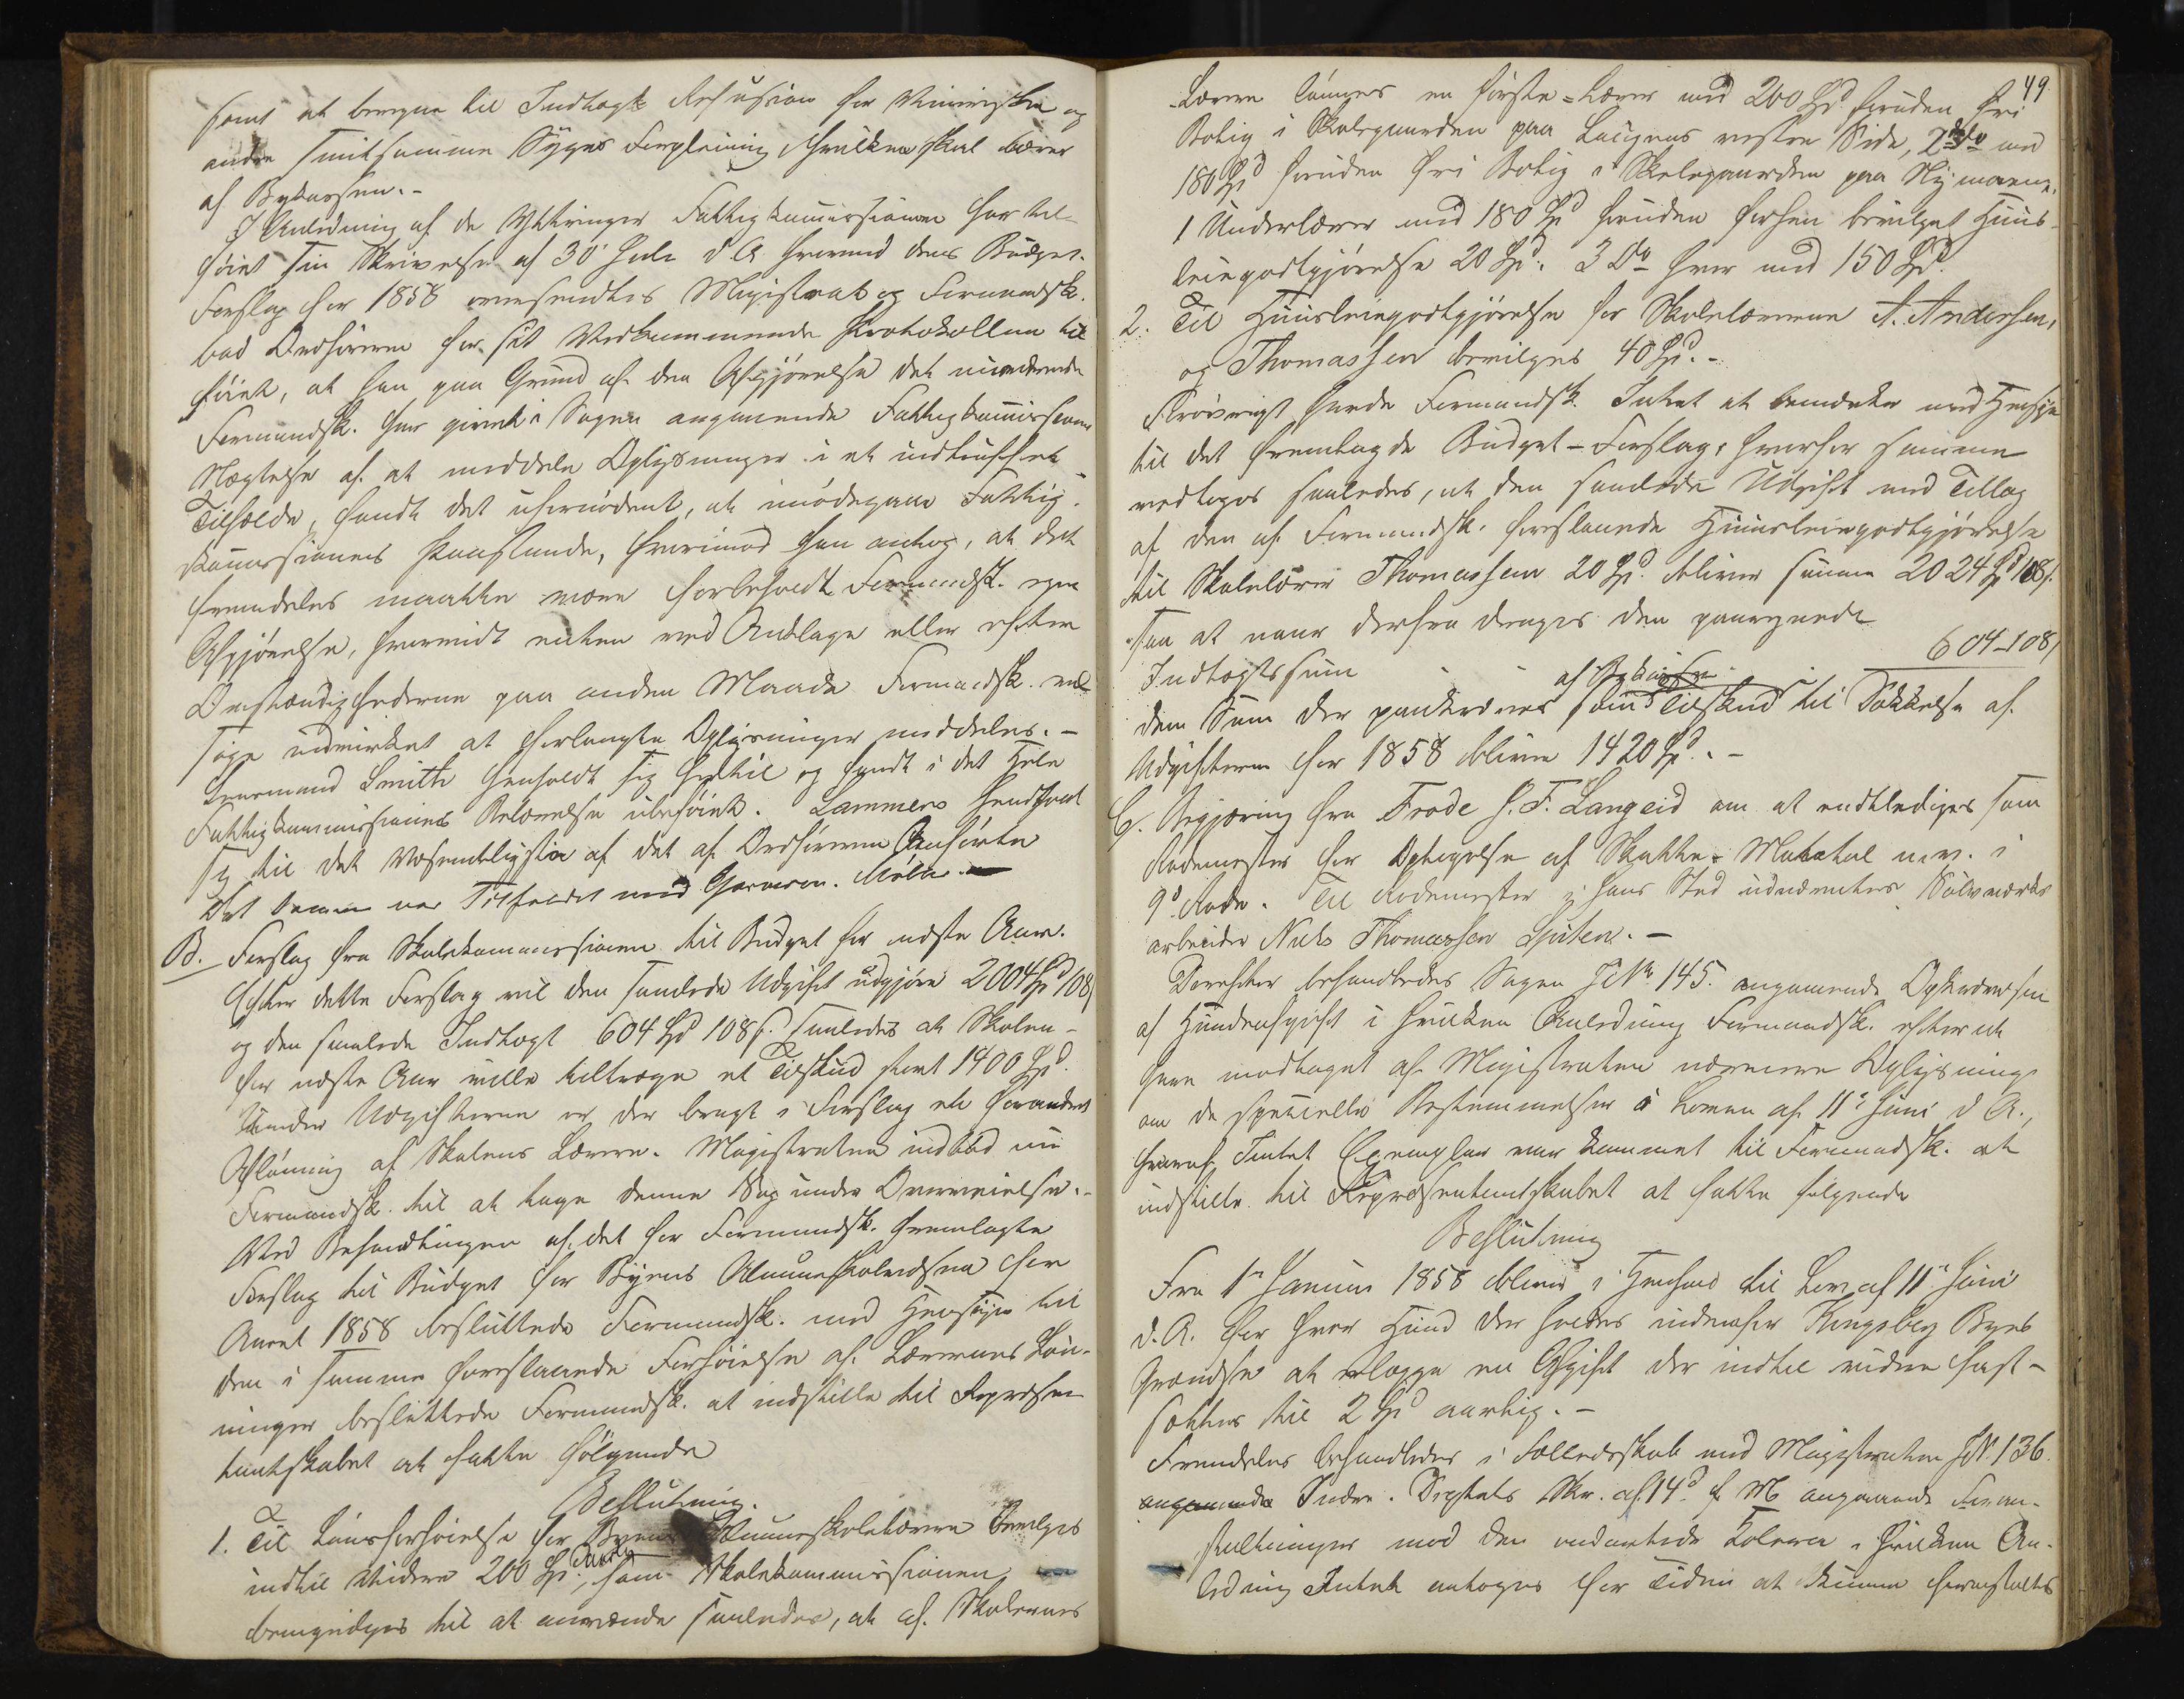 samt at beregne til Indtægt Refusion for Veneriske og
andre smitsomme Syges Forpleining, hvilken skal bæres
af Bykassen. -
I Anledning af de Yttringer Fattigkommissionen har til-
föiet sin Skrivelse af 30 Juli d. A. hvormed dens Budget-
Forslag for 1858 oversendtes Magistrat og Formandsk.
bad Ordföreren for sit Vedkommende Protokollen til-
föiet, at han paa Grund af den Afgjörelse det nuværende
Formandsk. har givet i Sagen angaaende Fattigkommissionens
Nægtelse af at meddele Oplysninger i et indtruffet
Tilfælde, fandt det ufornödent, at imödegaae Fattig-
kommissionens Paastande, hvorimod han antog, at det
fremdeles maatte være forbeholdt Formandsk. egen
Afgjörelse, hvorvidt enten ved Andrage eller efter
Omstændighederne paa anden Maade Formandsk. vil
söge udvirket at forlangte Oplysninger meddeles. -
Formand Smith henholdt sig hertil og fandt i det Hele
Fattigkommissionens Belærelse ubeföiet. Lammers henholdt
sig til det Væsentligste af det af Ordföreren Anförte
Det Samme var Tilfældet med
B. Forslag fra Skolekommissionen til Budget for næste Aar.
Efter dette Forslag vil den samlede Udgift udgjöre 2004 Spd 108 s
og den samlede Indtægt 604 Spd 108 s. saaledes at Skolen
for næste Aar ville tiltrænge et Tilskud stort 1400 Spd.
Under Udgifterne er der bragt i Forslag en forandret
Aflönning af Skolens Lærere. Magistraten indböd nu
Formandsk. til at tage denne Sag under Overveielse. -
Ved Behandlingen af det for Formandsk. fremlagte
Forslag til Budget for Byens Almueskolevæsen for
Aaret 1858 besluttede Formandsk. med Hensyn til
den i samme foreslaaede Forhöielse af Lærernes LöN-
ninger besluttede Formandsk. at indstille til Repræsen
tantskabet at fatte fölgende
Beslutning.
1. Til Lönsforhöielse for Byens Almueskolelærere bevilges
indtil Videre 200 Spd. aarlig, som Skolekommissionen
bemyndiges til at anvende saaledes, at af Skolernes
49.
Lærere lönnes en förste-Lærer med 200 Spd foruden fri
Bolig i Skolegaarden paa Laugens vestre Side, 2den do med
180 Spd foruden fri Bolig i Skolegaarden paa Nymoen,
1 Underlærer med 180 Spd foruden forhen bevilget Huus-
leiegodtgjörelse 20 Spd. 3 Do hver med 150 Spd.
2. Til Huusleiegodtgjörelse for Skolelærerne A. Andersen,
og Thomassen bevilges 40 Spd. -
Forövrigt havde Formandsk. Intet at bemærke med Hensyn
til det fremlagde Budget-Forslag, hvorfor samme
vedtoges saaledes, at den samlede Udgift med Tillæg
af den af Formandsk. foreslaaede Huusleiegodtgjörelse
til Skolelærer Thomassen 20 Spd. bliver summa 2024 Spd 108 s.
saa at naar derfra drages den paaregnede
Indtægtssum 604-108,
af Bykassen
den Sum der paakræves som Tilskud til Dækkelse af
Udgifterne for 1858 bliver 1420 Spd. -
C. Begjæring fra Frode H. F. Langeid om at entlediges som
Rodemester for Optagelse af Skatte-Mandtal m. v. i
9de Rode. Til Rodemester i hans Sted udnævntes Sölvværks
arbeider Niels Thomassen Spiten. -
Derefter behandledes Sagen J. No 145. angaaende Opkrævelsen
af Hundeafgift i hvilken Anledning Formandsk. efter at
have modtaget af Magistraten nærmere Oplysning
om de specielle Bestemmelser i Loven af 11te Juni d A.,
hvoraf Intet Exemplar var kommet til Formandsk. at
indstille til Repræsentantskabet at fatte fölgende
Beslutning
Fra 1ste Januar 1858 bliver i Henhold til Lov af 11te Juni
d. A. for hver Hund der holdes indenfor Kongsberg Byes
Grændse at erlægge en Afgift der indtil videre fast-
sættes til 2 Spd aarlig. -
Fremdeles behandledes i Fælledsskab med Magistraten J No 136.
angaaende Indre. Depts Skr. af 14de f. M angaaende Foran-
staltninger mod den ondartede Kolera i hvilken An-
ledning Intet antoges for Tiden at kunne foranstaltes